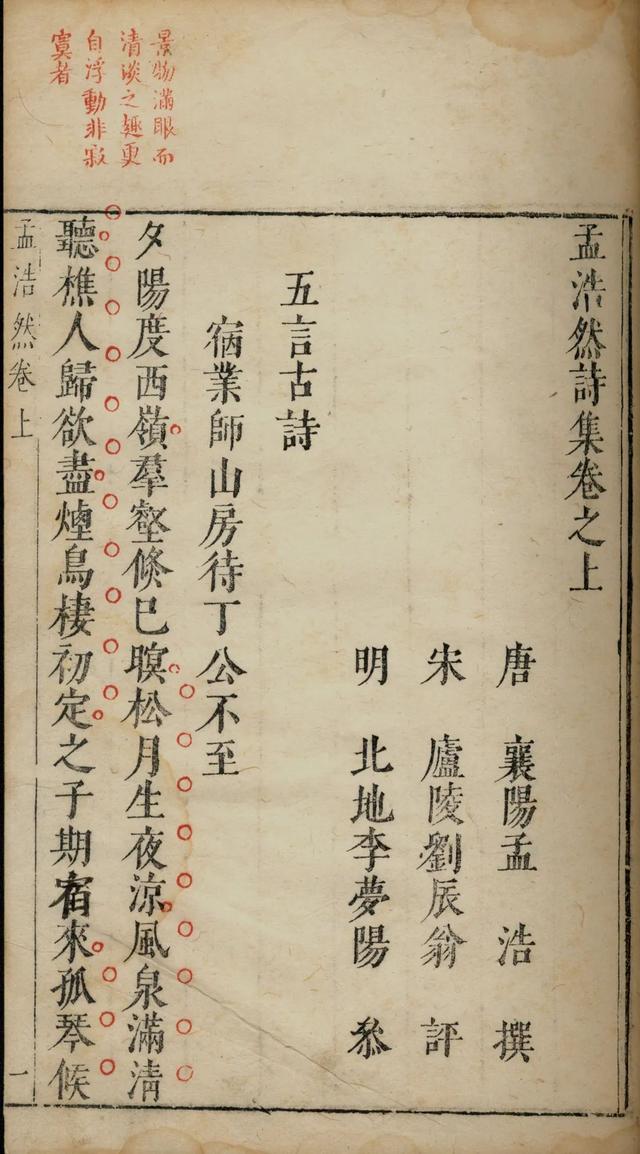 景物滿眼而
清淡之趣更
自浮動非寂
寞者
孟浩然詩集卷之上
唐 襄陽孟 浩 撰
宋 廬陵劉辰翁 評
明 北地李夢陽 叅
五言古詩
宿業師山房待丁公不至
夕陽度西嶺羣壑倐巳暝松月生夜涼風泉滿清
聽樵人歸欲盡煙鳥棲初定之子期宿來孤琴候
孟浩然卷上
一